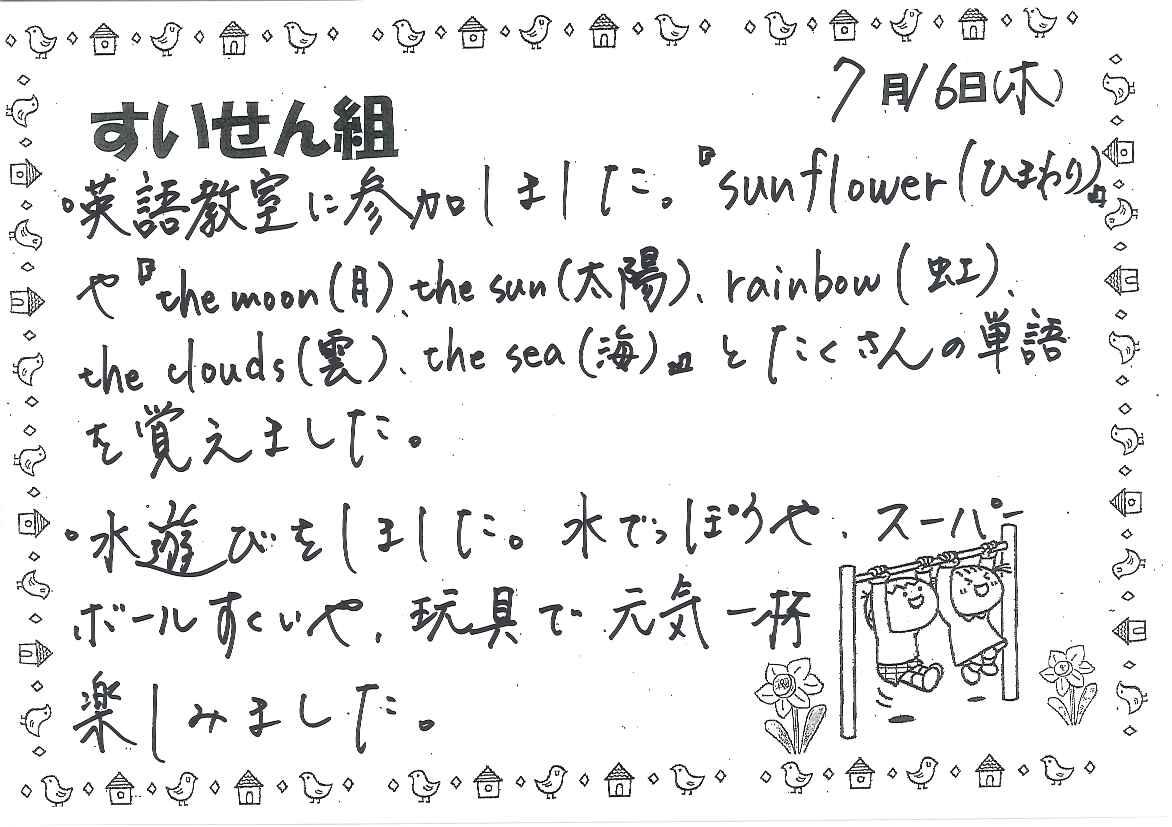 7月16日(木)
すいせん組
・英語教室に参加しました。『sunflower(ひまわり)』
や『the moon(月)、the sun(太陽)、rainbow(虹)、
the clouds(雲)、the sea(海)』とたくさんの単語
を覚えました。
・水遊びをしました。水でっぽうや、スーパー
ボールすくいや、玩具で元気一杯
楽しみました。